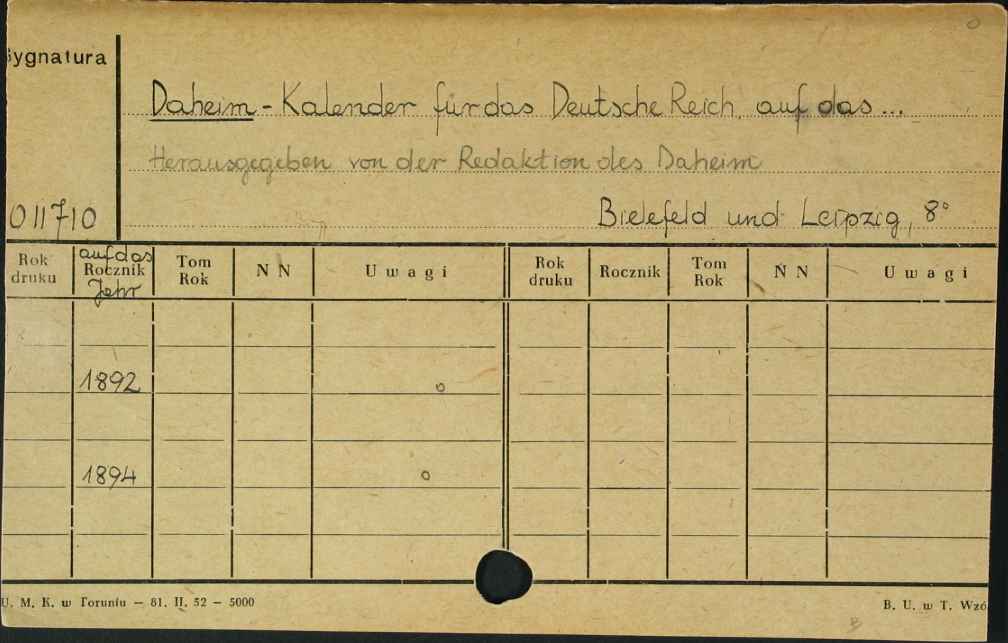 Sygnatura
Daheim - Kalender für das Deutsche Reich, auf das ...
Herausgegeben von der Redaktion des Daheim
011710
Bielefeld und Leipzig, 8°
Rok druku | auf das Rocznik Jahr | Tom Rok | N N | Uwagi | Rok druku | Rocznik | Tom Rok | N N | Uwagi
1892 o
1894 o
U. M. K. w Toruniu — 81. II. 52 — 5000
B. U. w T. Wzó